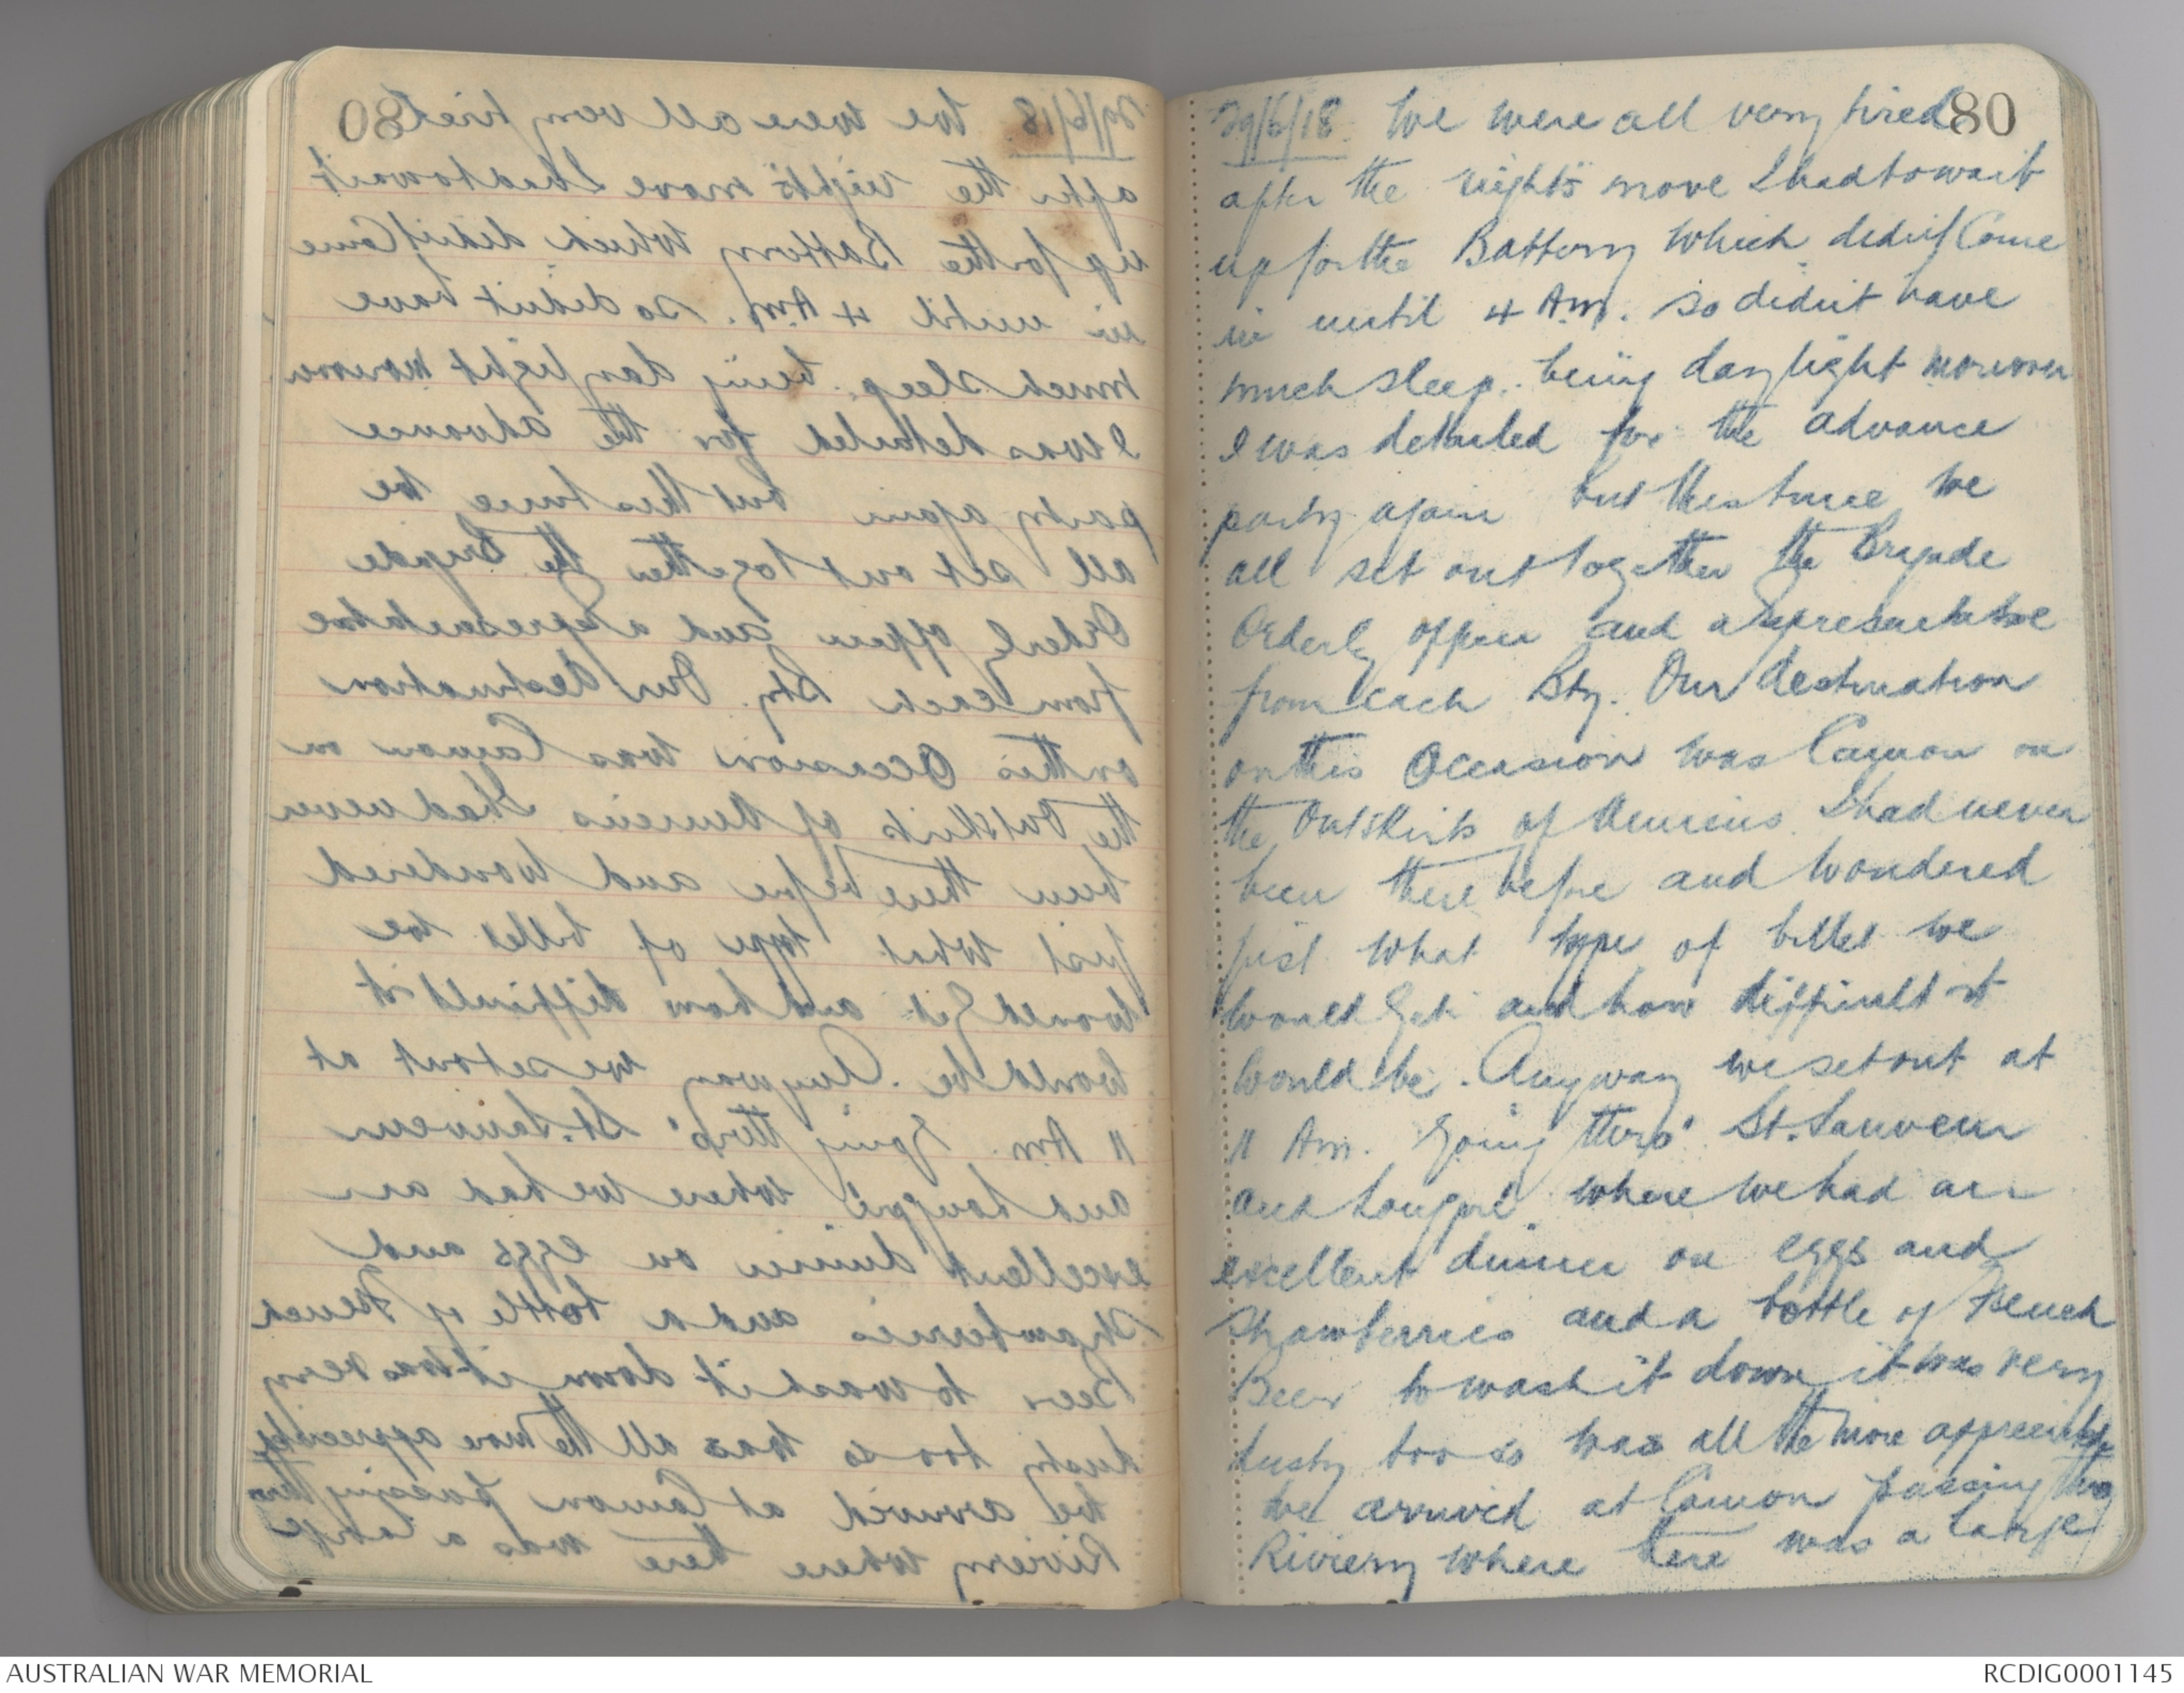 80
29/6/18. We were all very tired
after the night's move I had to wait
up for the Battery which didn't Come
in until 4 Am. so didn't have
much sleep. being daylight moreover
I was detailed for the advance
party again but this time we
all set out together the Brigade
Orderly officer and a representative
from each Bty. Our destination
on this Occasion was Camon on
the Outskirts of Amiens I had never
been there before and wondered
just what type of billet we
would get and how difficult it
would be. Anyway we set out at
11 Am. going thro' St. Sauveur
and Longpré where we had an
excellent dinner on eggs and
Strawberries and a bottle of French
Beer to wash it down it was very
dusty too so was all the more appreciated
We arrived at Camon passing thro
Riviery where there was a large
AUSTRALIAN WAR MEMORIAL
RCDIG0001145